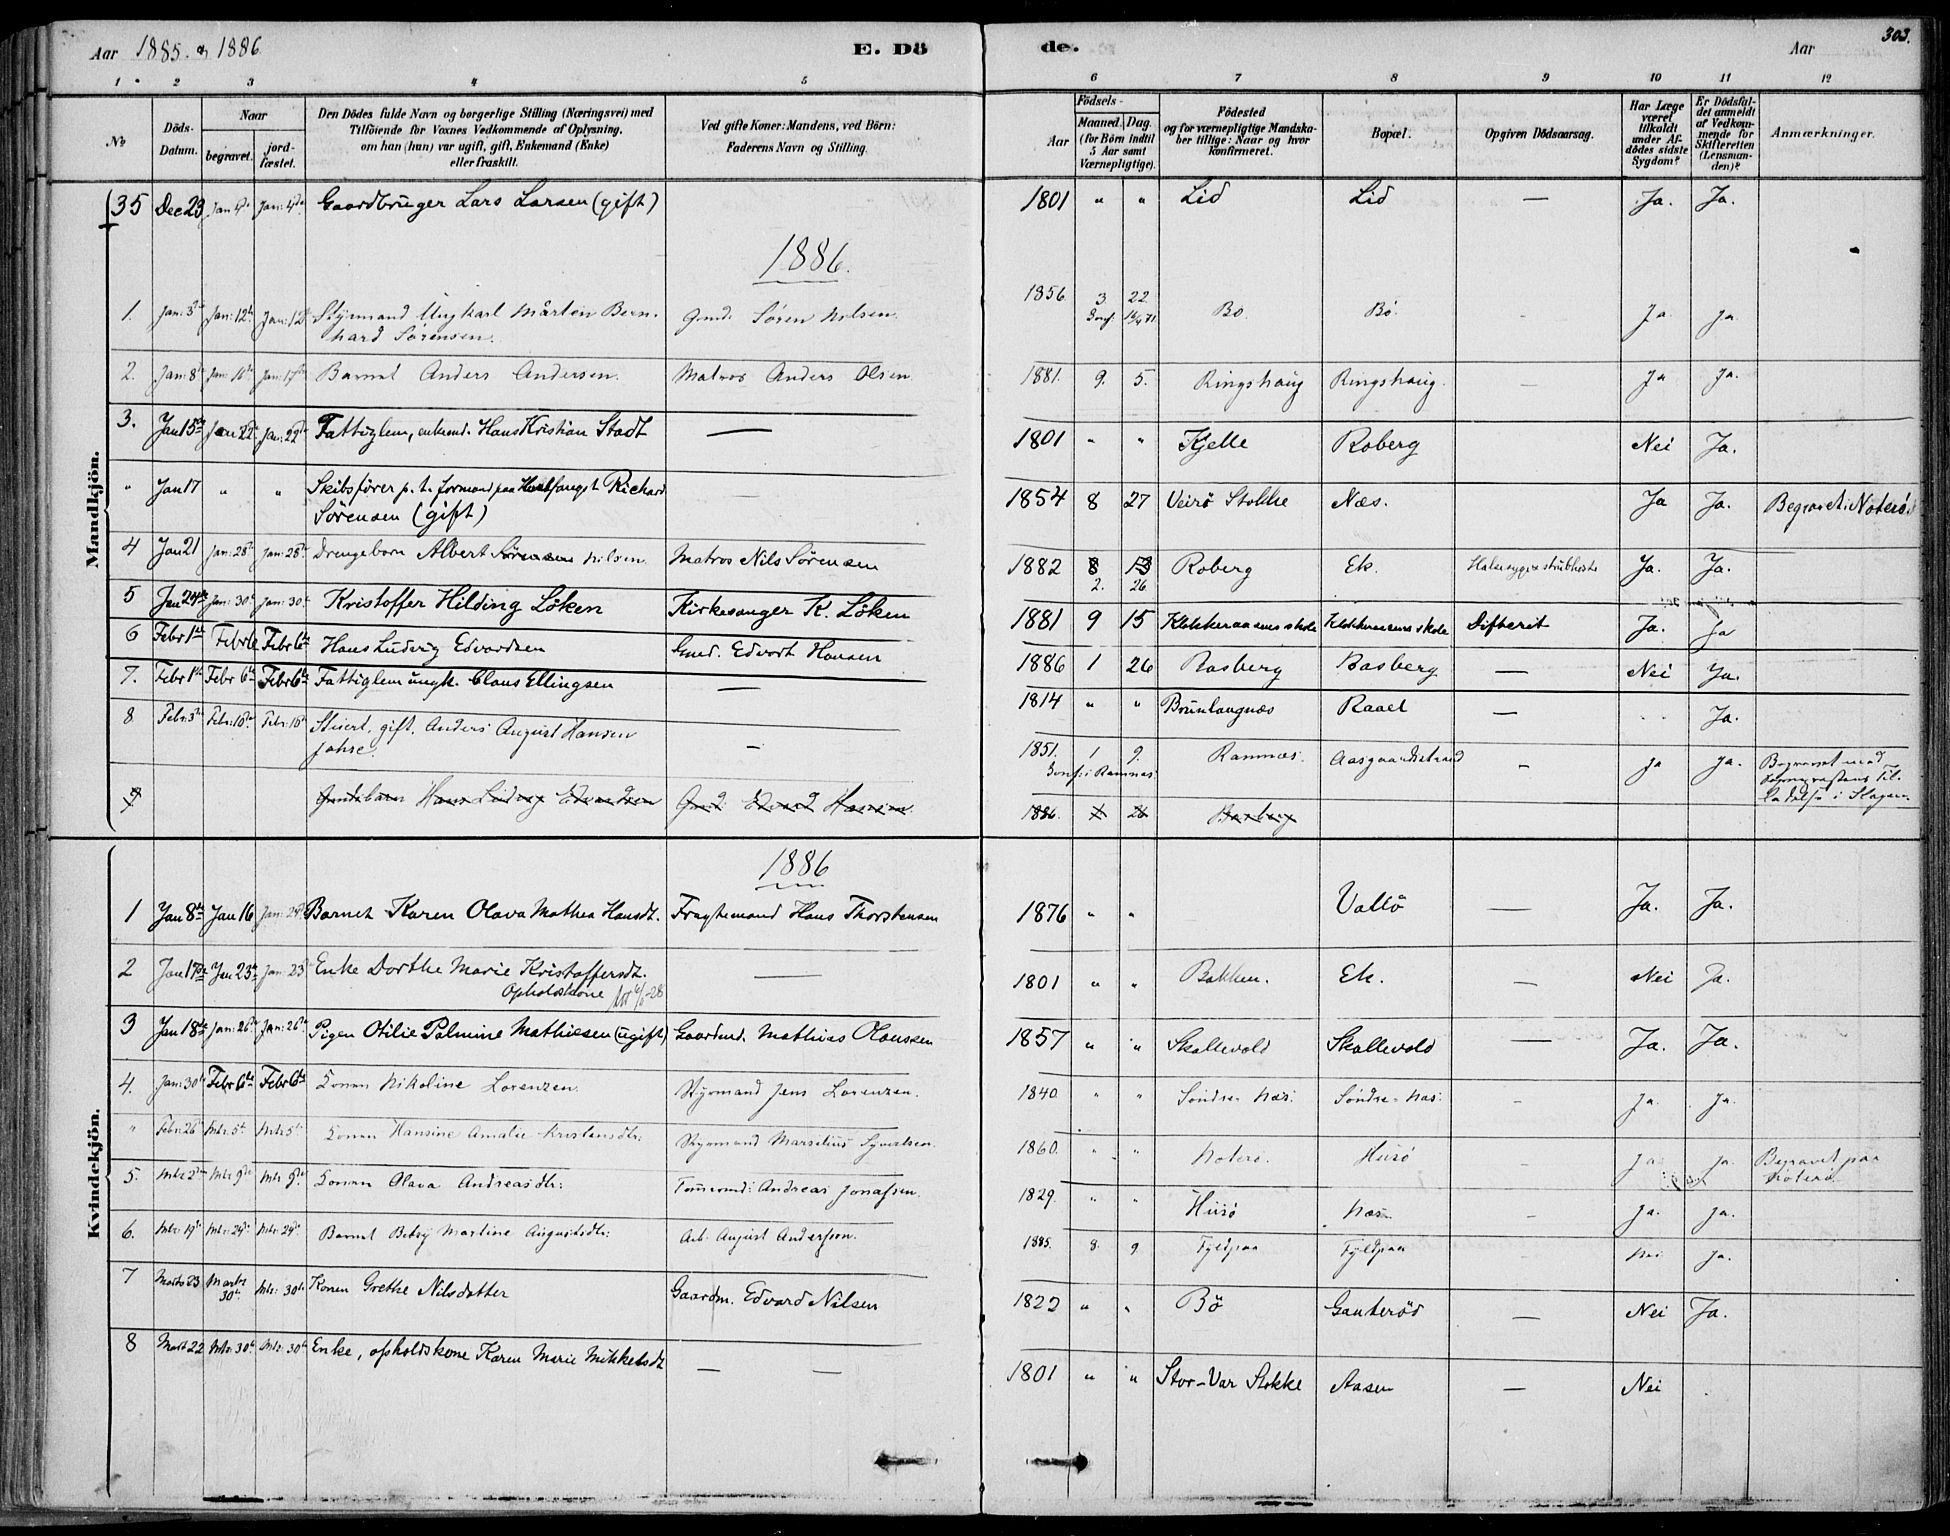 Aar 1885. & 1886
E. Dö
de.
Aar
303.
1 2 3 4 5 6 7 8 9 10 11 12
No
Döds-
Datum.
Naar
begravet.
jord-
fæstet.
Den Dödes fulde Navn og borgerlige Stilling (Næringsvei) med
Tilföiende for Voxnes Vedkommende af Oplysning,
om han (hun) var ugift, gift, Enkemand (Enke)
eller fraskilt.
Ved gifte Koner: Mandens, ved Börn:
Faderens Navn og Stilling.
Födsels-
Aar
Maaned. Dag.
(for Börn indtil
5 Aar samt
Værnepligtige).
Födested
og for værnepligtige Mandska-
ber tillige: Naar og hvor
konfirmeret.
Bopæl.
Opgiven Dödsaarsag.
Har Læge
været
tilkaldt
under Af-
dödes sidste
Sygdom?
Er Dödsfal-
det anmeldt
af Vedkom-
mende for
Skifteretten
(Lensman-
den)?
Anmærkninger.
Mandkjön.
35 Dec 23 Jan 4de Jan: 4de Gaardbruger Lars Larsen (gift) 1801 " " Lid Lid — Ja. Ja.
1886.
1. Jan: 3die Jan: 12te Jan: 12te Styrmand Ungkarl Mårtin Bern- Gmd. Sören Nilsen. 1856 3 22 Bö. Bö. Ja Ja.
hard Sörensen. Conf.
2. Jan: 8de Jan: 16de Jan: 17de Barnet Anders Andersen. Matros Anders Olsen. 1881. 9. 5. Ringshaug Ringshaug. — Ja Ja.
3. Jan 15de Jan 22de Jan: 22de Fattiglem, enkemd. Hans Kristian Stadt — 1801 " " Kjelle Roberg Nei Ja.
" Jan 17 " " Skibsförer p.t. formand paa Hvalfangst Richard
Sörensen (gift) 1854 8 27 Veirö Stokke Næs. Ja Ja. Begravet i Noterö.
4 Jan 21 Jan: 28de Jan: 28de Drengebarn Albert Sörensen Nilsen Matros Nils Sörensen 1882 8 13 Roberg Ek. Halssyge Ja. Ja.
2. 26
5 Jan 24de Jan: 30te Jan: 30te Kristoffer Hilding Löken Kirkesanger K. Löken 1881 9 15 Klokkeraasens skole Klokkeraasens skole Difterit Ja. Ja
6 Febr 1ste Febr 6 Febr 6te Hans Ludvig Edvardsen Gmd. Edvart Hansen 1886 1 26 Basberg Basberg — Nei Ja.
7. Febr 1ste Febr 6te Febr 6te Fattiglem ungk. Claus Ellingsen — 1814 " " Brunlangnæs Raael — Ja.
8 Febr: 3die Febr: 10de Febr: 10de Stuert, gift, Anders August Hansen
Jahre. — 1851. 1 9. Ramnæs. Aasgaardsstrand — Ja Ja. Begravet med
Conf: i Ramnæs
i Slagen.
9 Hans Ludvig Edvardsen Gmd. Edvard Hansen. 1886. 1 26 Basberg
Kvindekjön.
1886
1 Jan 8de Jan 16 Jan: 24de Barnet Karen Olava Mathea Hansdt. Fragtemand Hans Thorstensen 1876 " " Vallö — Ja. Ja.
2 Jan 17de Jan 23de Jan: 23de Enke Dorthe Marie Kristoffersdt. — 1801 " " Bakken. Ek. — Nei Ja.
Opholdskone
3 Jan 18de Jan: 26de Jan: 26de Pigen Otilie Palmine Mathiesen (ugift) Gaardmd. Mathias Olaussen 1857 " " Skallevold Skallevold — Ja. Ja.
4. Jan: 30te Febr 6te Febr 6te Konen Nikoline Lorenzen. Styrmand Jens Lorenzen. 1840. " " Söndre-Næs. Söndre-Næs. — Ja. Ja.
" Febr: 26de Mts: 5te Mts: 5te Konen Hansine Amalie Kristensdtr: Styrmand Marselius Syvertsen. 1860. " " Noterö. Husö — Ja Ja. Begravet paa
Nöterö
5. Mts 2den Mts 9de Mts 9de Konen Olava Andreasdtr: Tömmermd: Andreas Jonassen. 1829. " " Husö Næs — Ja. Ja.
6. Mts: 19de Mts: 24de Mts: 24de Barnet Betsy Martine Augustsdtr: Arb. August Anderson. 1885. 8. 9 Fyldpaa Fyldpaa — Nei Ja.
7 Marts 23 Marts 30te Mts: 30te Konen Grethe Nilsdatter Gaardm. Edvard Nilsen 1822 " " Bö Gauteröd — Nei Ja.
8 Marts 22 Mts: 30te Mts: 30te Enke, opholdskone Karen Marie Mikkelsdt. — — 1801 " " Stor-Var Stokke Aasen — Nei